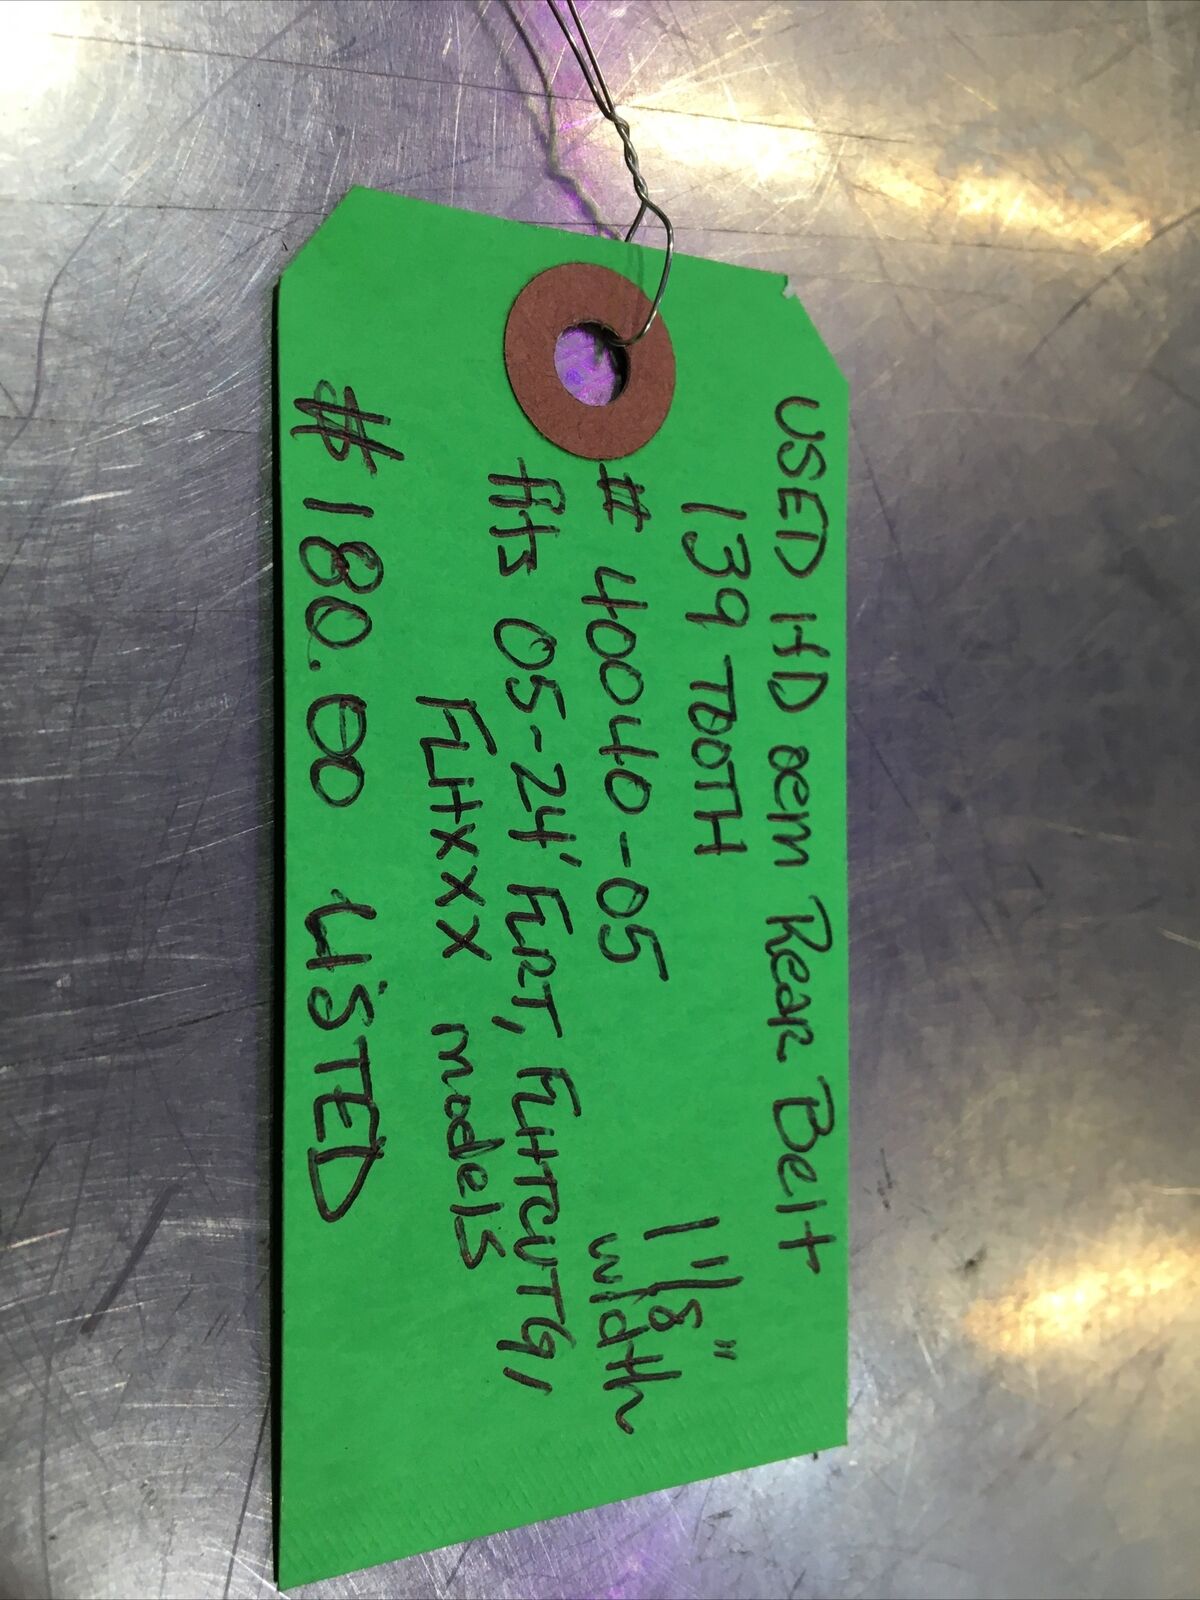 USED HD oem Rear Belt
139 TOOTH
1 1/8" width
# 40040-05
fits 05-24' FLRT, FLHTCUTG,
FLHXXX models
$180.00 LISTED